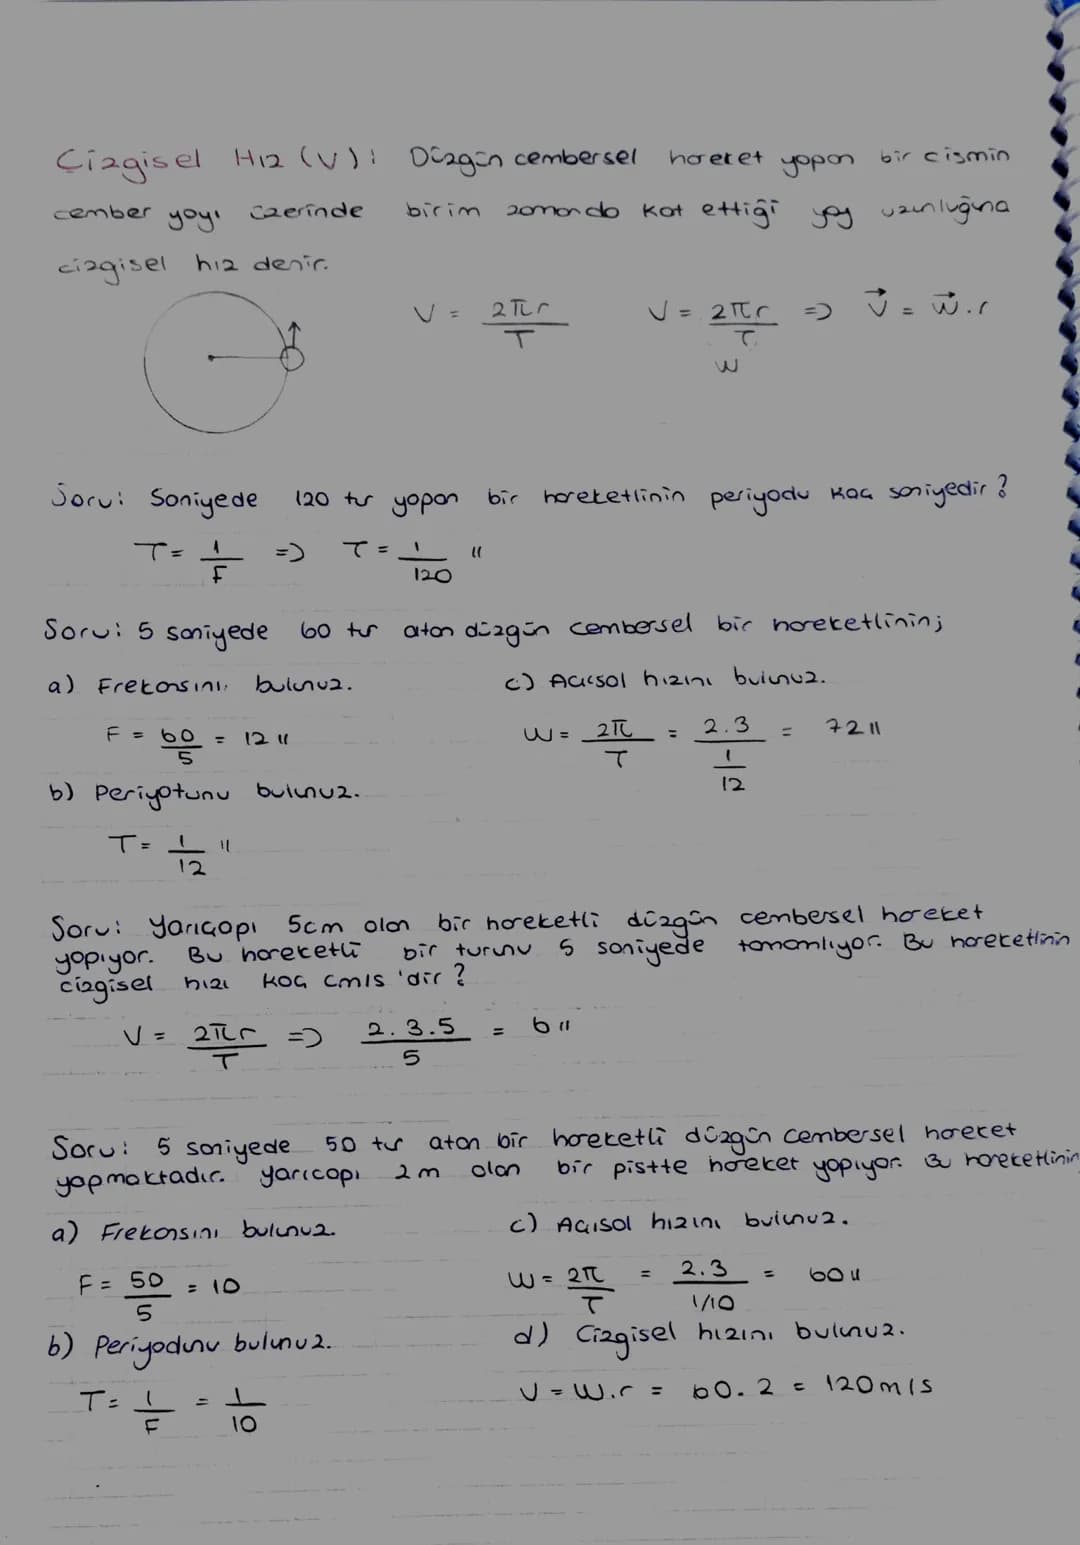 Çizgisel Hız (V): Düzgün cembersel hareket yapan bir cismin
cember yayı üzerinde birim zamanda kat ettiği yay uzunluğuna
cizgisel hız denir.
V = 2πr / T    V = 2πr / T => V⃗ = W⃗.r
W
Soru: Saniyede 120 tur yapan bir hareketlinin periyodu kaç saniyedir?
T = 1/F => T = 1/120 "
Soru: 5 saniyede 60 tur atan düzgün cembersel bir hareketlinin;
a) Frekansını bulunuz.
F = 60/5 = 12 "
b) Periyotunu bulunuz.
T = 1/12 "
c) Acısal hızını bulunuz.
W = 2π/T = 2.3 / (1/12) = 72 "
Soru: Yarıçapı 5cm olan bir hareketli düzgün cembersel hareket
yapıyor. Bu hareketli bir turunu 5 saniyede tamamlıyor. Bu hareketlinin
cizgisel hızı kaç cm/s 'dir?
V = 2πr / T => 2.3.5 / 5 = 6 "
Soru: 5 saniyede 50 tur atan bir hareketli düzgün cembersel hareket
yapmaktadır. yarıcapı 2m olan bir pistte hareket yapıyor. Bu hareketlinin
a) Frekansını bulunuz.
F = 50/5 = 10
b) Periyodunu bulunuz.
T = 1/F = 1/10
c) Açısal hızını bulunuz.
W = 2π/T = 2.3 / 1/10 = 60 "
d) Cizgisel hızını bulunuz.
V = W.r = 60.2 = 120m/s